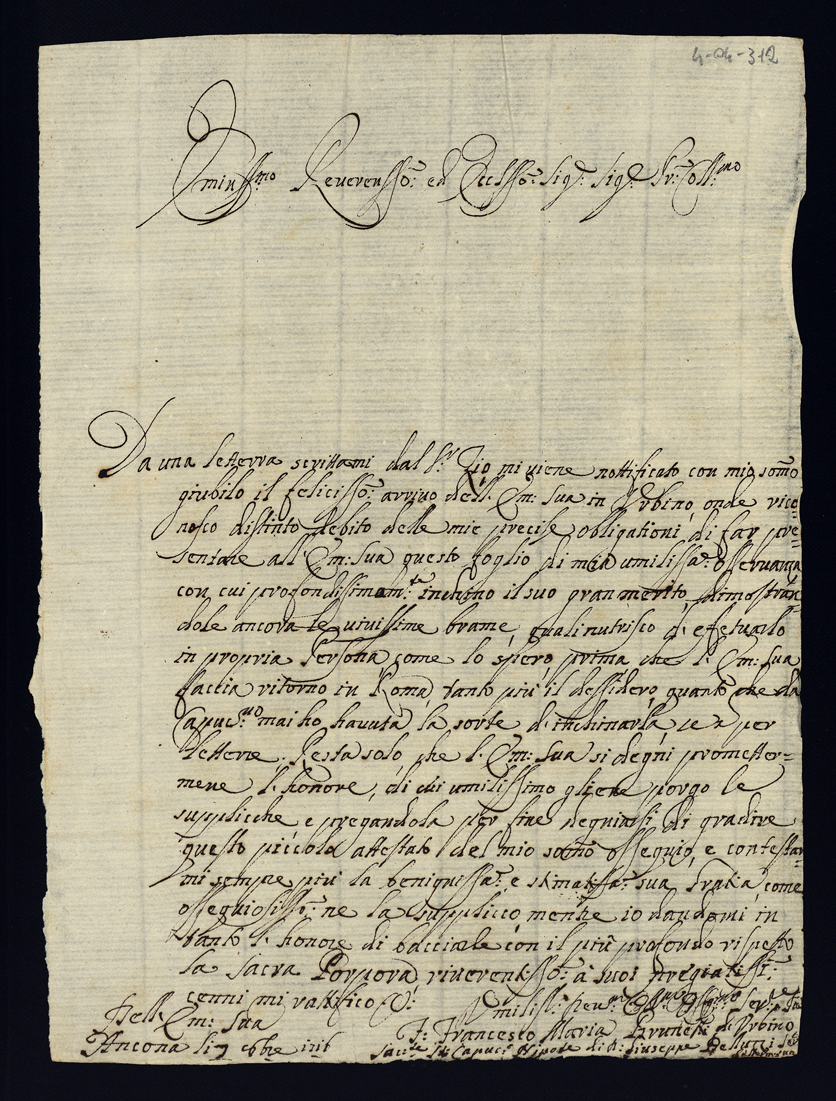 4-04-312
Emin.ssmo Reverensso: ed Eccl.sso: Sig.e Sig.e Pr: Coll:mo
Da una letterra scrittami dal S.r Zio mi viene nottificato con mio somo
giubilo il felicisso: arrivo dell: Em: Sua in Vrbino, onde rico
nosco distinto debito delle mie precise obligationi di far pre=
sentare all: Em: Sua questo foglio di mia umilissa: osservanza
con cui profondissimam:te inchino il suo gran merito, dimostran
dole ancora le vivissime brame, quali nutrisco d: efetuarlo
in propria Persona, come lo spero, prima che l: Em: Sua
faccia ritorno in Roma, tanto più il dessidero, quanto che da
Capuc:no mai ho havuta la sorte d: inchinarla, se n per
lettere. Resta solo, che l: Em: Sua si degni prometter=
mene l: honore, di cui umilissimo gliene porgo le
supplicche e pregandola per fine degniarsi di gradire
questo picciolo attestato del mio somo ossequio, e contestar
mi sempre più la benignissa: e stimatissa: sua Grazia, come
ossequiosisso: ne la supplicco, mentre io dandomi in
tanto l: honore di bacciarle con il più profondo rispetto
la sacra Porpora riverentisso: à suoi pregiatiss:
cenni mi ratifico
Dell: Em: Sua
Ancona li 7 bre
F: Francesco Maria Brunetti di Vrbino
Sacer.te Capuc: Nipote di D: Giuseppe